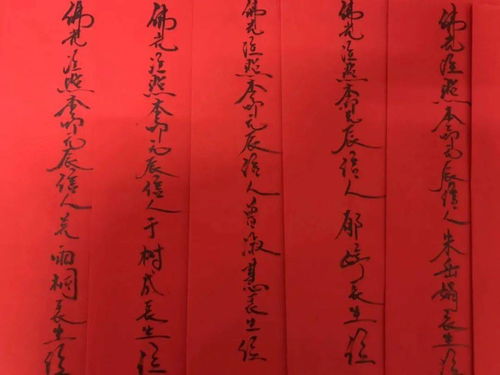 佛光注照本命元辰信人朱岳娟长生位
佛光注照本命元辰信人长生位
佛光注照本命元辰信人曾淑慧长生位
佛光注照本命元辰信人于树成长生位
佛光注照本命元辰信人雨桐长生位